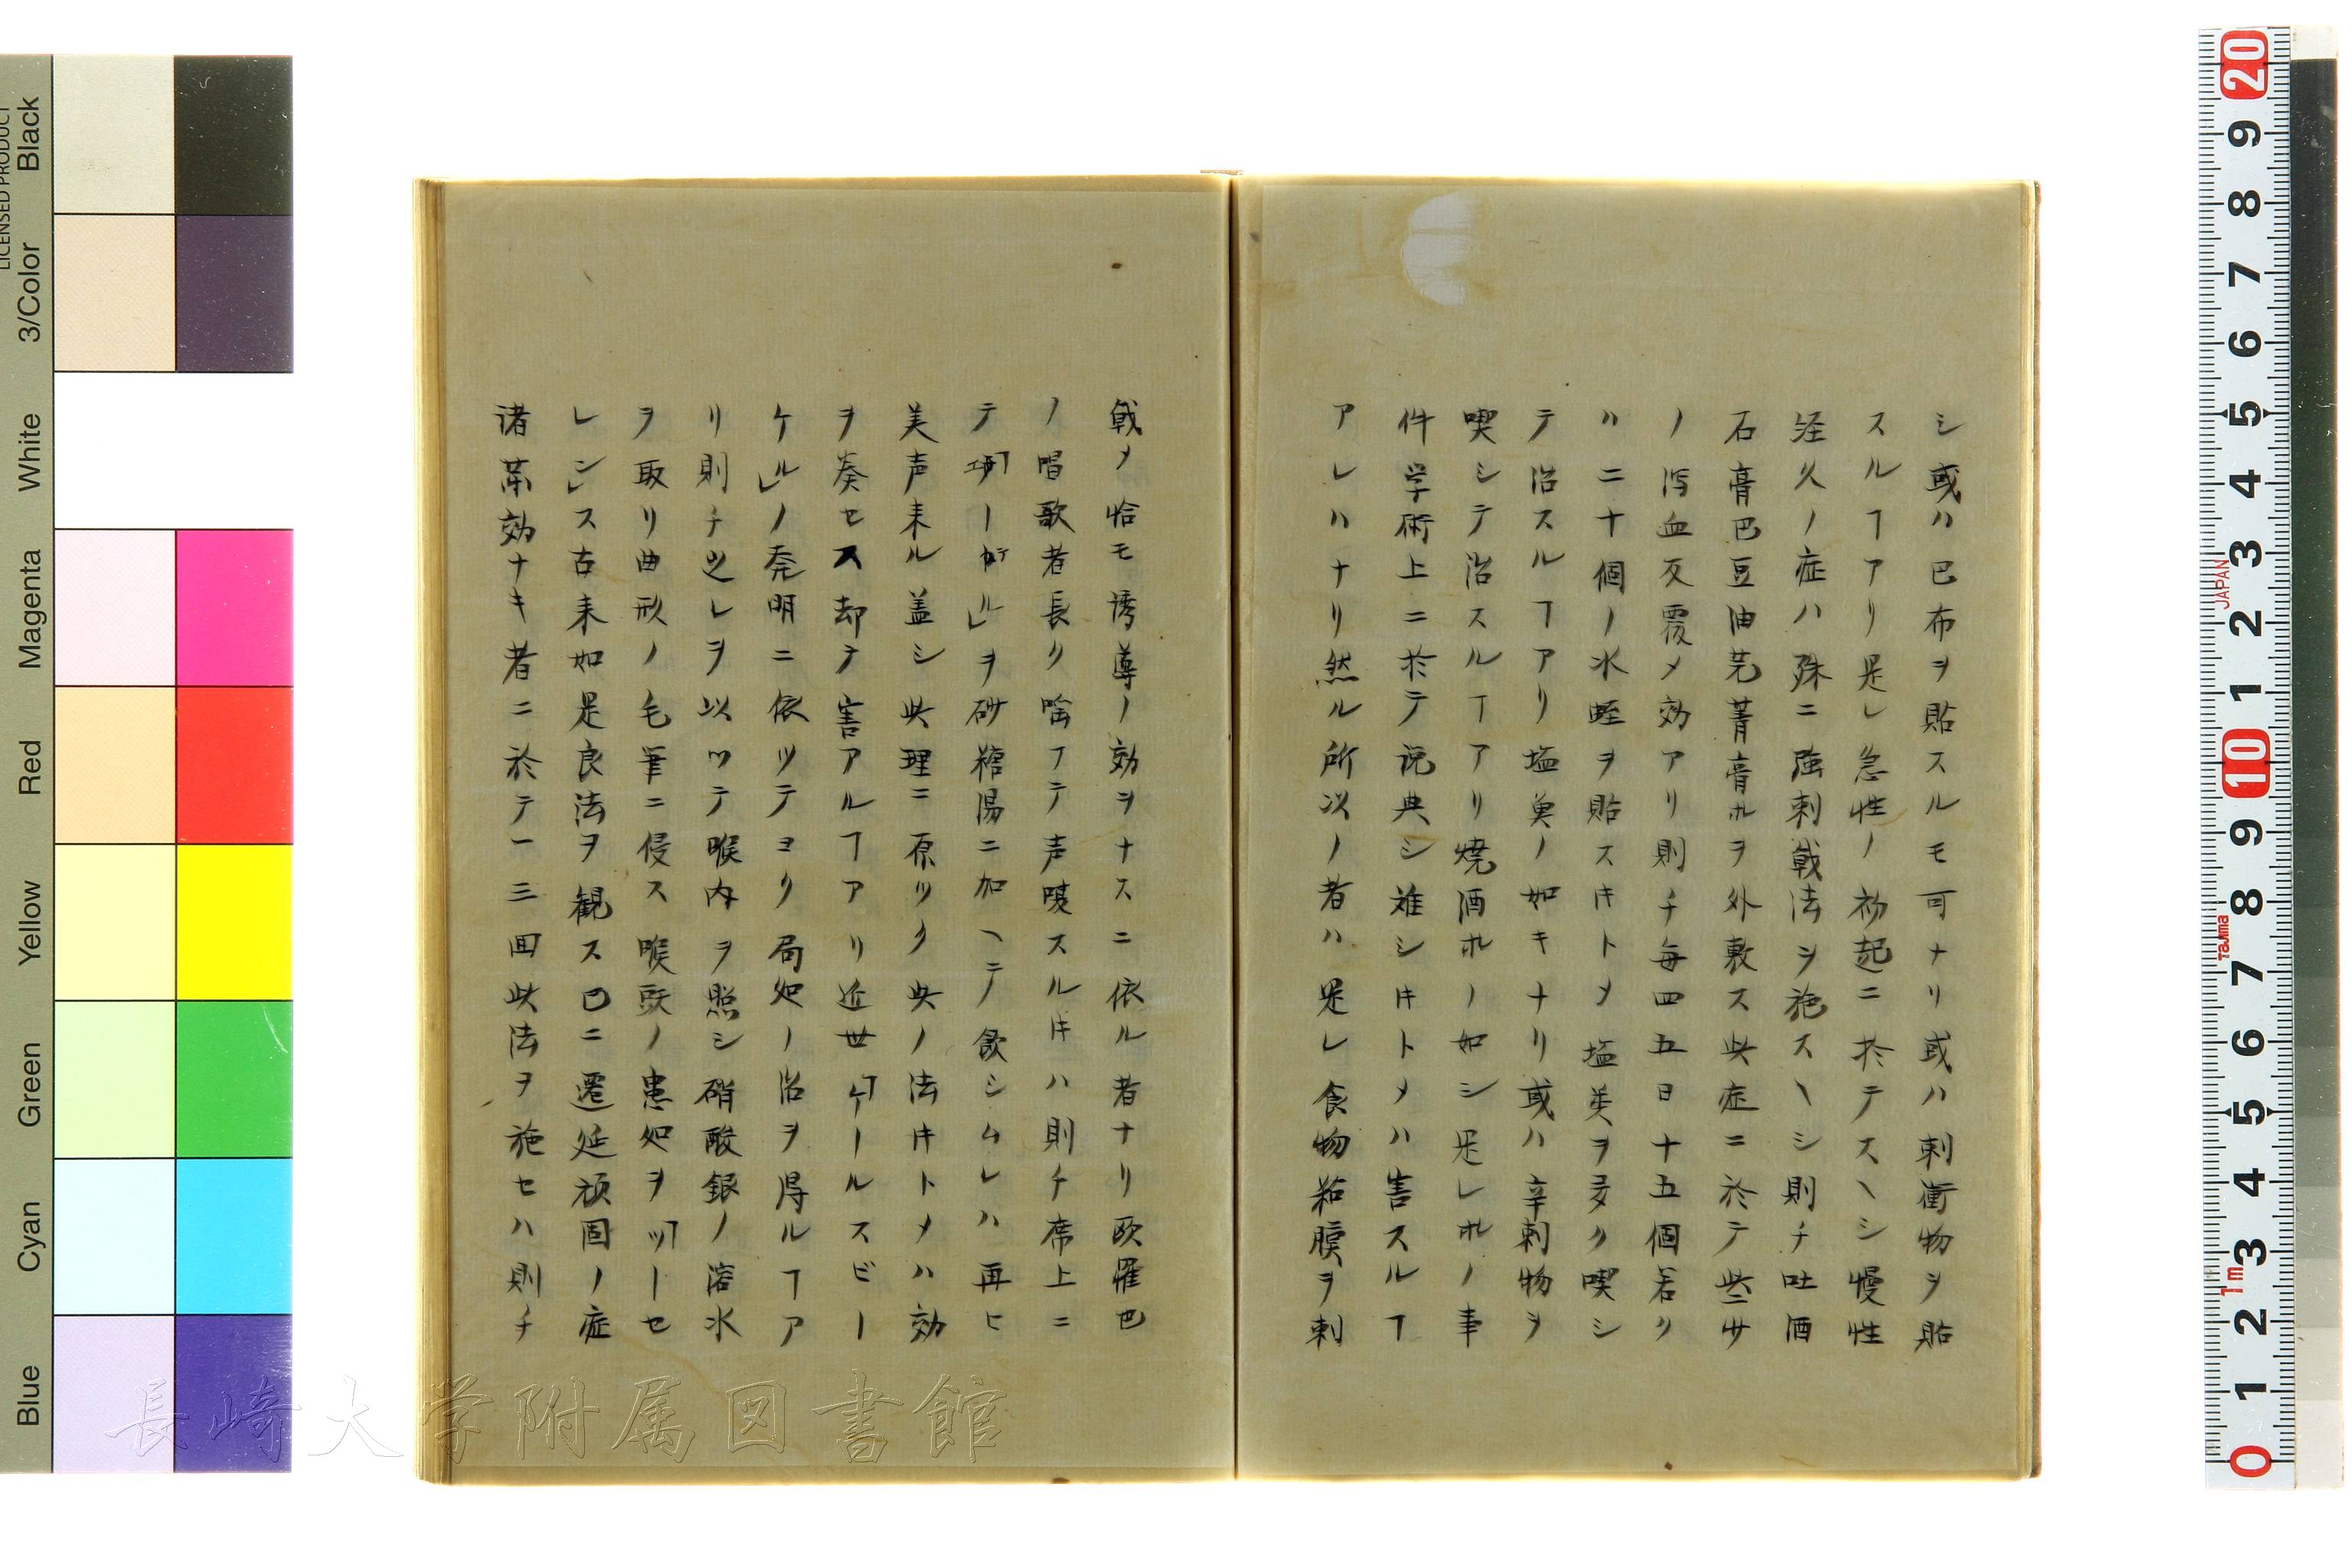 シ或ハ巴布ヲ貼スルモ可ナリ或ハ刺衝物ヲ貼
スルヿアリ是レ急性ノ初起ニ於テスヘシ慢性
経久ノ症ハ殊ニ強刺戟法ヲ施スヘシ則チ吐酒
石膏巴豆油芫菁膏ホヲ外敷ス此症ニ於テ些少
ノ瀉血反覆メ効アリ則チ毎四五日十五個若ク
ハ二十個ノ水蛭ヲ貼スキトメ塩类ヲ多ク喫シ
テ治スルヿアリ塩魚ノ如キナリ或ハ辛刺物ヲ
喫シテ治スルヿアリ焼酒ホノ如シ是レホノ事
件学術上ニ於テ説典シ難シキトメハ害スルヿ
アレハナリ然ル所以ノ者ハ是レ食物粘膜ヲ刺
戟メ恰モ誘導ノ効ヲナスニ依ル者ナリ欧羅巴
ノ唱歌者長ク啼フテ声嗄スルキハ則チ席上ニ
テ「ール」ヲ砂糖湯ニ加ヘテ飲シムレハ再ヒ
美声来ル蓋シ此理ニ原ツク此ノ法キトメハ効
ヲ奏セス却テ害アルヿアリ近世「ケールスビー
ケル」ノ発明ニ依ツテヨリ局処ノ治ヲ得ルヿア
リ則チ之レヲ以ツテ喉内ヲ照シ硝酸銀ノ溶水
ヲ取リ曲形ノ毛筆ニ侵ス喉頭ノ患処ヲ「ツーセ
レン」ス古来如是良法ヲ観ス已ニ遷延頑固ノ症
諸薬効ナキ者ニ於テ一三回此法ヲ施セハ則チ
長崎大学附属図書館
LICENSED PRODUCT
Black
3/Color
White
Magenta
Red
Yellow
Green
Cyan
Blue
20
9
8
7
6
5
4
3
JAPAN
2
1
10
9
8
Tajima
7
6
5
4
3
1m
2
1
0